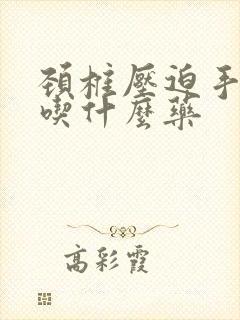 頸椎壓迫手
喫什麼藥
高彩霞